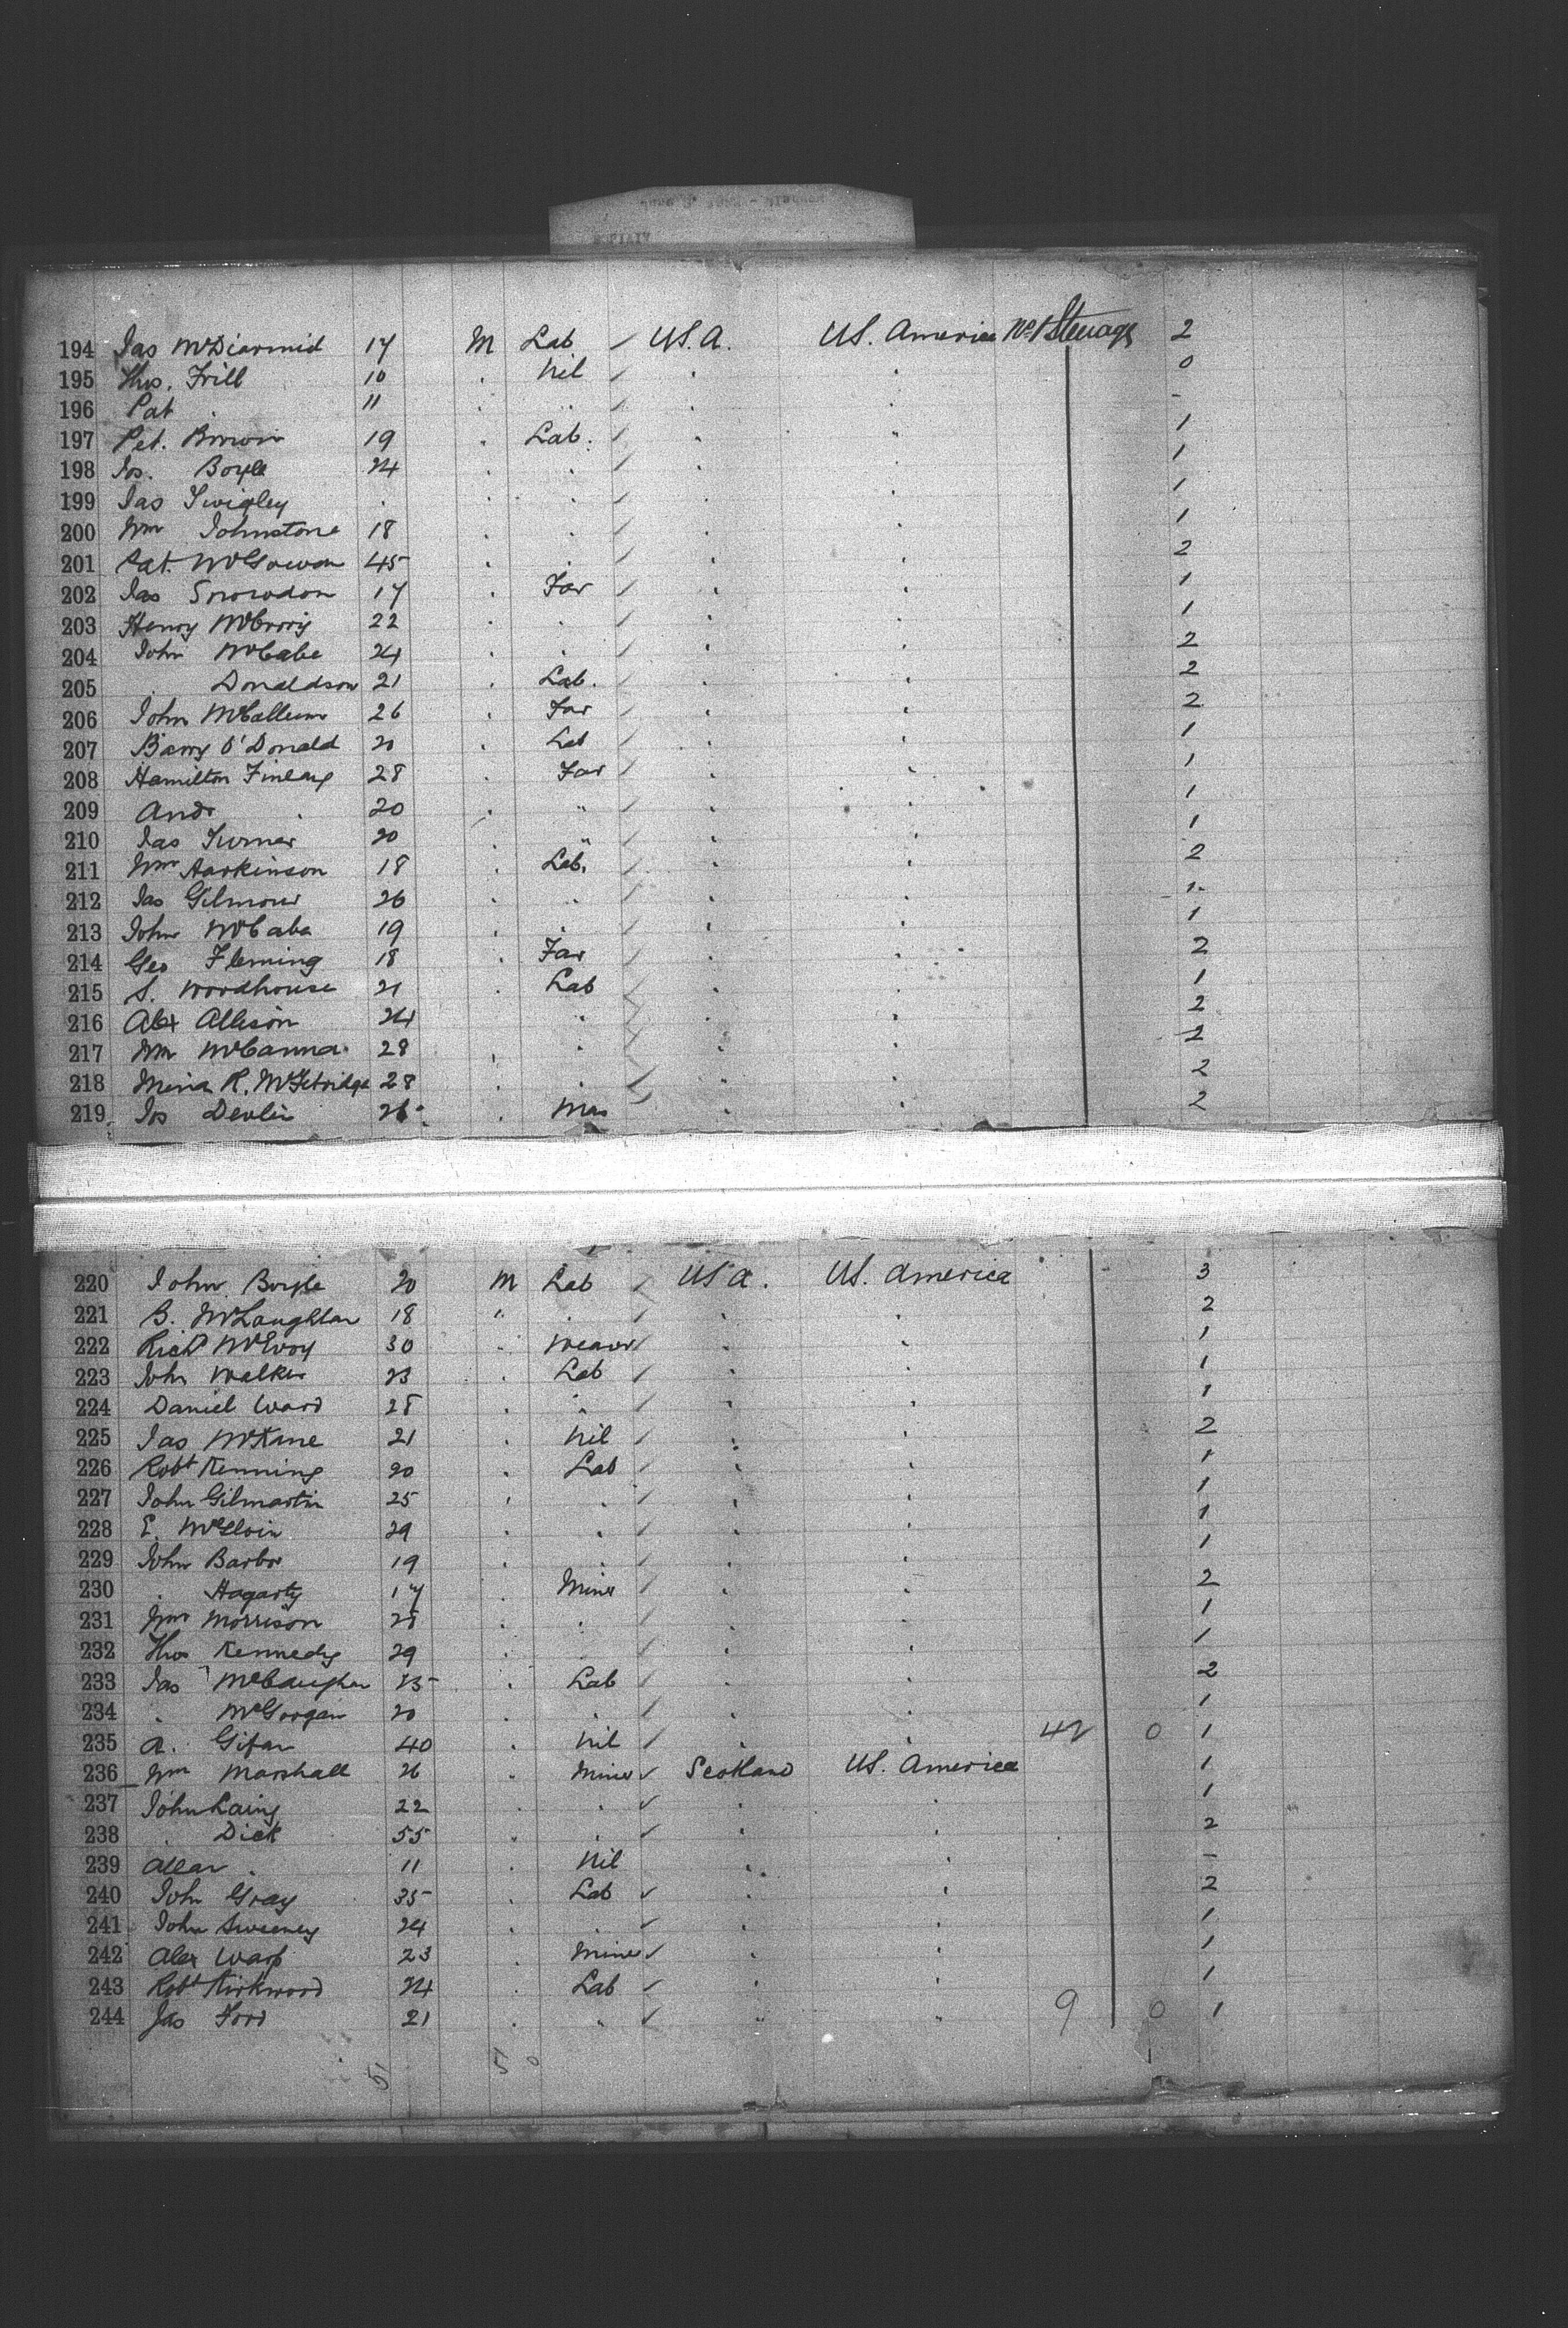 194 Jas McDiarmid 17 M Lab ✓ U.S.A. U.S. America No 1 Steerage 2
195 Thos. Frill 10 . Nil ✓ . . 0
196 Pat . 11 . .. ✓ . . -
197 Pet. Brown 19 . Lab. ✓ . . 1
198 Jos. Boyle 24 . . ✓ . . 1
199 Jas Swigley . . . ✓ . . 1
200 Wm Johnstone 18 . . ✓ . . 1
201 Pat. McGowan 45 . . ✓ . . 2
202 Jas Snowdon 17 . Far ✓ . . 1
203 Henry 22 . . ✓ . . 1
204 John McCabe 24 . . ✓ . . 2
205 . Donaldson 21 . Lab. ✓ . . 2
206 John McCallum 26 . Far ✓ . . 2
207 Barry O'Donald 20 . Lab ✓ . . 1
208 Hamilton Finlay 28 . Far ✓ . . 1
209 Andr . 20 . " ✓ . . 1
210 Jas Turner 20 . " ✓ . . 1
211 Wm Harkinson 18 . Lab. ✓ . . 2
212 Jas Gilmour 26 . .. ✓ . . 1
213 John McCabe 19 . . ✓ . . 1
214 Geo Fleming 18 . Far ✓ . . 2
215 S. Woodhouse 21 . Lab ✓ . . 1
216 Alex Allison 24 . ✓ . . 2
217 Wm McCanna 28 . . ✓ . . 2
218 R. McFetridge 28 . . ✓ . . 2
219 Jos Devlin 26 . Mas . . 2
220 John Boyle 20 M Lab ✓ U.S.A. U.S. America 3
221 B. McLaughlan 18 " . ✓ . . 2
222 Richd McEvoy 30 . Weavr ✓ . . 1
223 John Walker 23 . Lab ✓ . . 1
224 Daniel Ward 28 . . ✓ . . 1
225 Jas McKane 21 . Nil ✓ . . 2
226 Robt Kenning 20 . Lab ✓ . . 1
227 John Gilmartin 25 . . ✓ . . 1
228 E. McGloin 29 . . ✓ . . 1
229 John Barbor 19 . . ✓ . . 1
230 . Hagarty 17 . Miner ✓ . . 2
231 Wm Morrison 28 . . ✓ . . 1
232 Thos Kennedy 29 . . ✓ . . 1
233 Jas McCaughan 35 . Lab ✓ . . 2
234 . McGoogan 20 . . ✓ . . 1
235 A. 40 . Nil ✓ . . 42 0 1
236 Wm Marshall 26 . Miner ✓ Scotland U.S. America 1
237 John Laing 22 . ✓ . . 1
238 . Dick 55 . . ✓ . . 2
239 Allan . 11 . Nil . . -
240 John Gray 35 . Lab ✓ . . 2
241 John Sweeney 24 . . ✓ . . 1
242 Alex 23 . Miner ✓ . . 1
243 Robt Kirkwood 24 . Lab ✓ . . 1
244 Jas Ford 21 . " ✓ " " 9 0 1
51 50